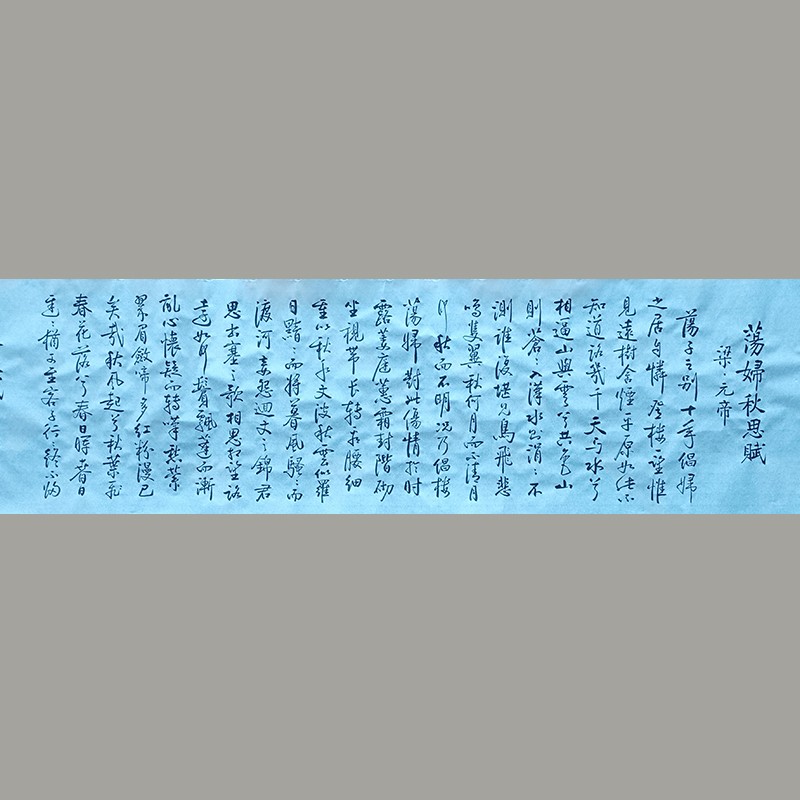 蕩婦秋思賦
梁·元帝
蕩子之別十年倡婦
之居自憐登樓一望惟
見遠樹含煙平原如此不
知道路幾千天与水兮
相逼山與雲兮共色山
則蒼〻入漢水則涓〻不
測誰復堪見鳥飛悲
鳴隻翼秋何月而不清月
何秋而不明況乃倡樓
蕩婦對此傷情於時
露萎庭蕙霜封階砌
坐視帶長轉看腰細
重以秋水文波秋雲似羅
日黯〻而將暮風騷〻而
渡河妾怨迴文之錦君
思出塞之歌相思相望路
遠如何鬢飄蓬而漸
亂心懷疑而轉嘆愁縈
翠眉斂啼多紅粉漫已
矣哉秋風起兮秋葉飛
春花落兮春日暉春日
遲〻猶可至客子行〻終不歸